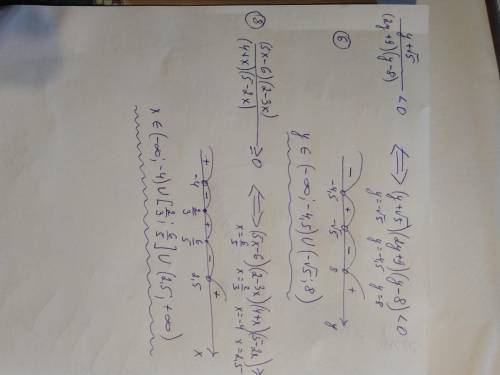 ⑥ (y+√5)/((2y+9)(y−8)) < 0 <=> (y+√5)(2y+9)(y−8) < 0
y=−√5 y=−4,5 y=8
− + − +
−4,5 −√5 8 y
y ∈ (−∞; −4,5) ∪ (−√5; 8)
⑧ ((5x−6)(2−3x))/((4+x)(5−2x)) ≥ 0 <=> (5x−6)(2−3x)(4+x)(5−2x) ≥
x=6/5 x=2/3 x=−4 x=2,5
+ − + − +
−4 2/3 6/5 2,5 x
x ∈ (−∞; −4) ∪ [2/3; 6/5] ∪ (2,5; +∞)